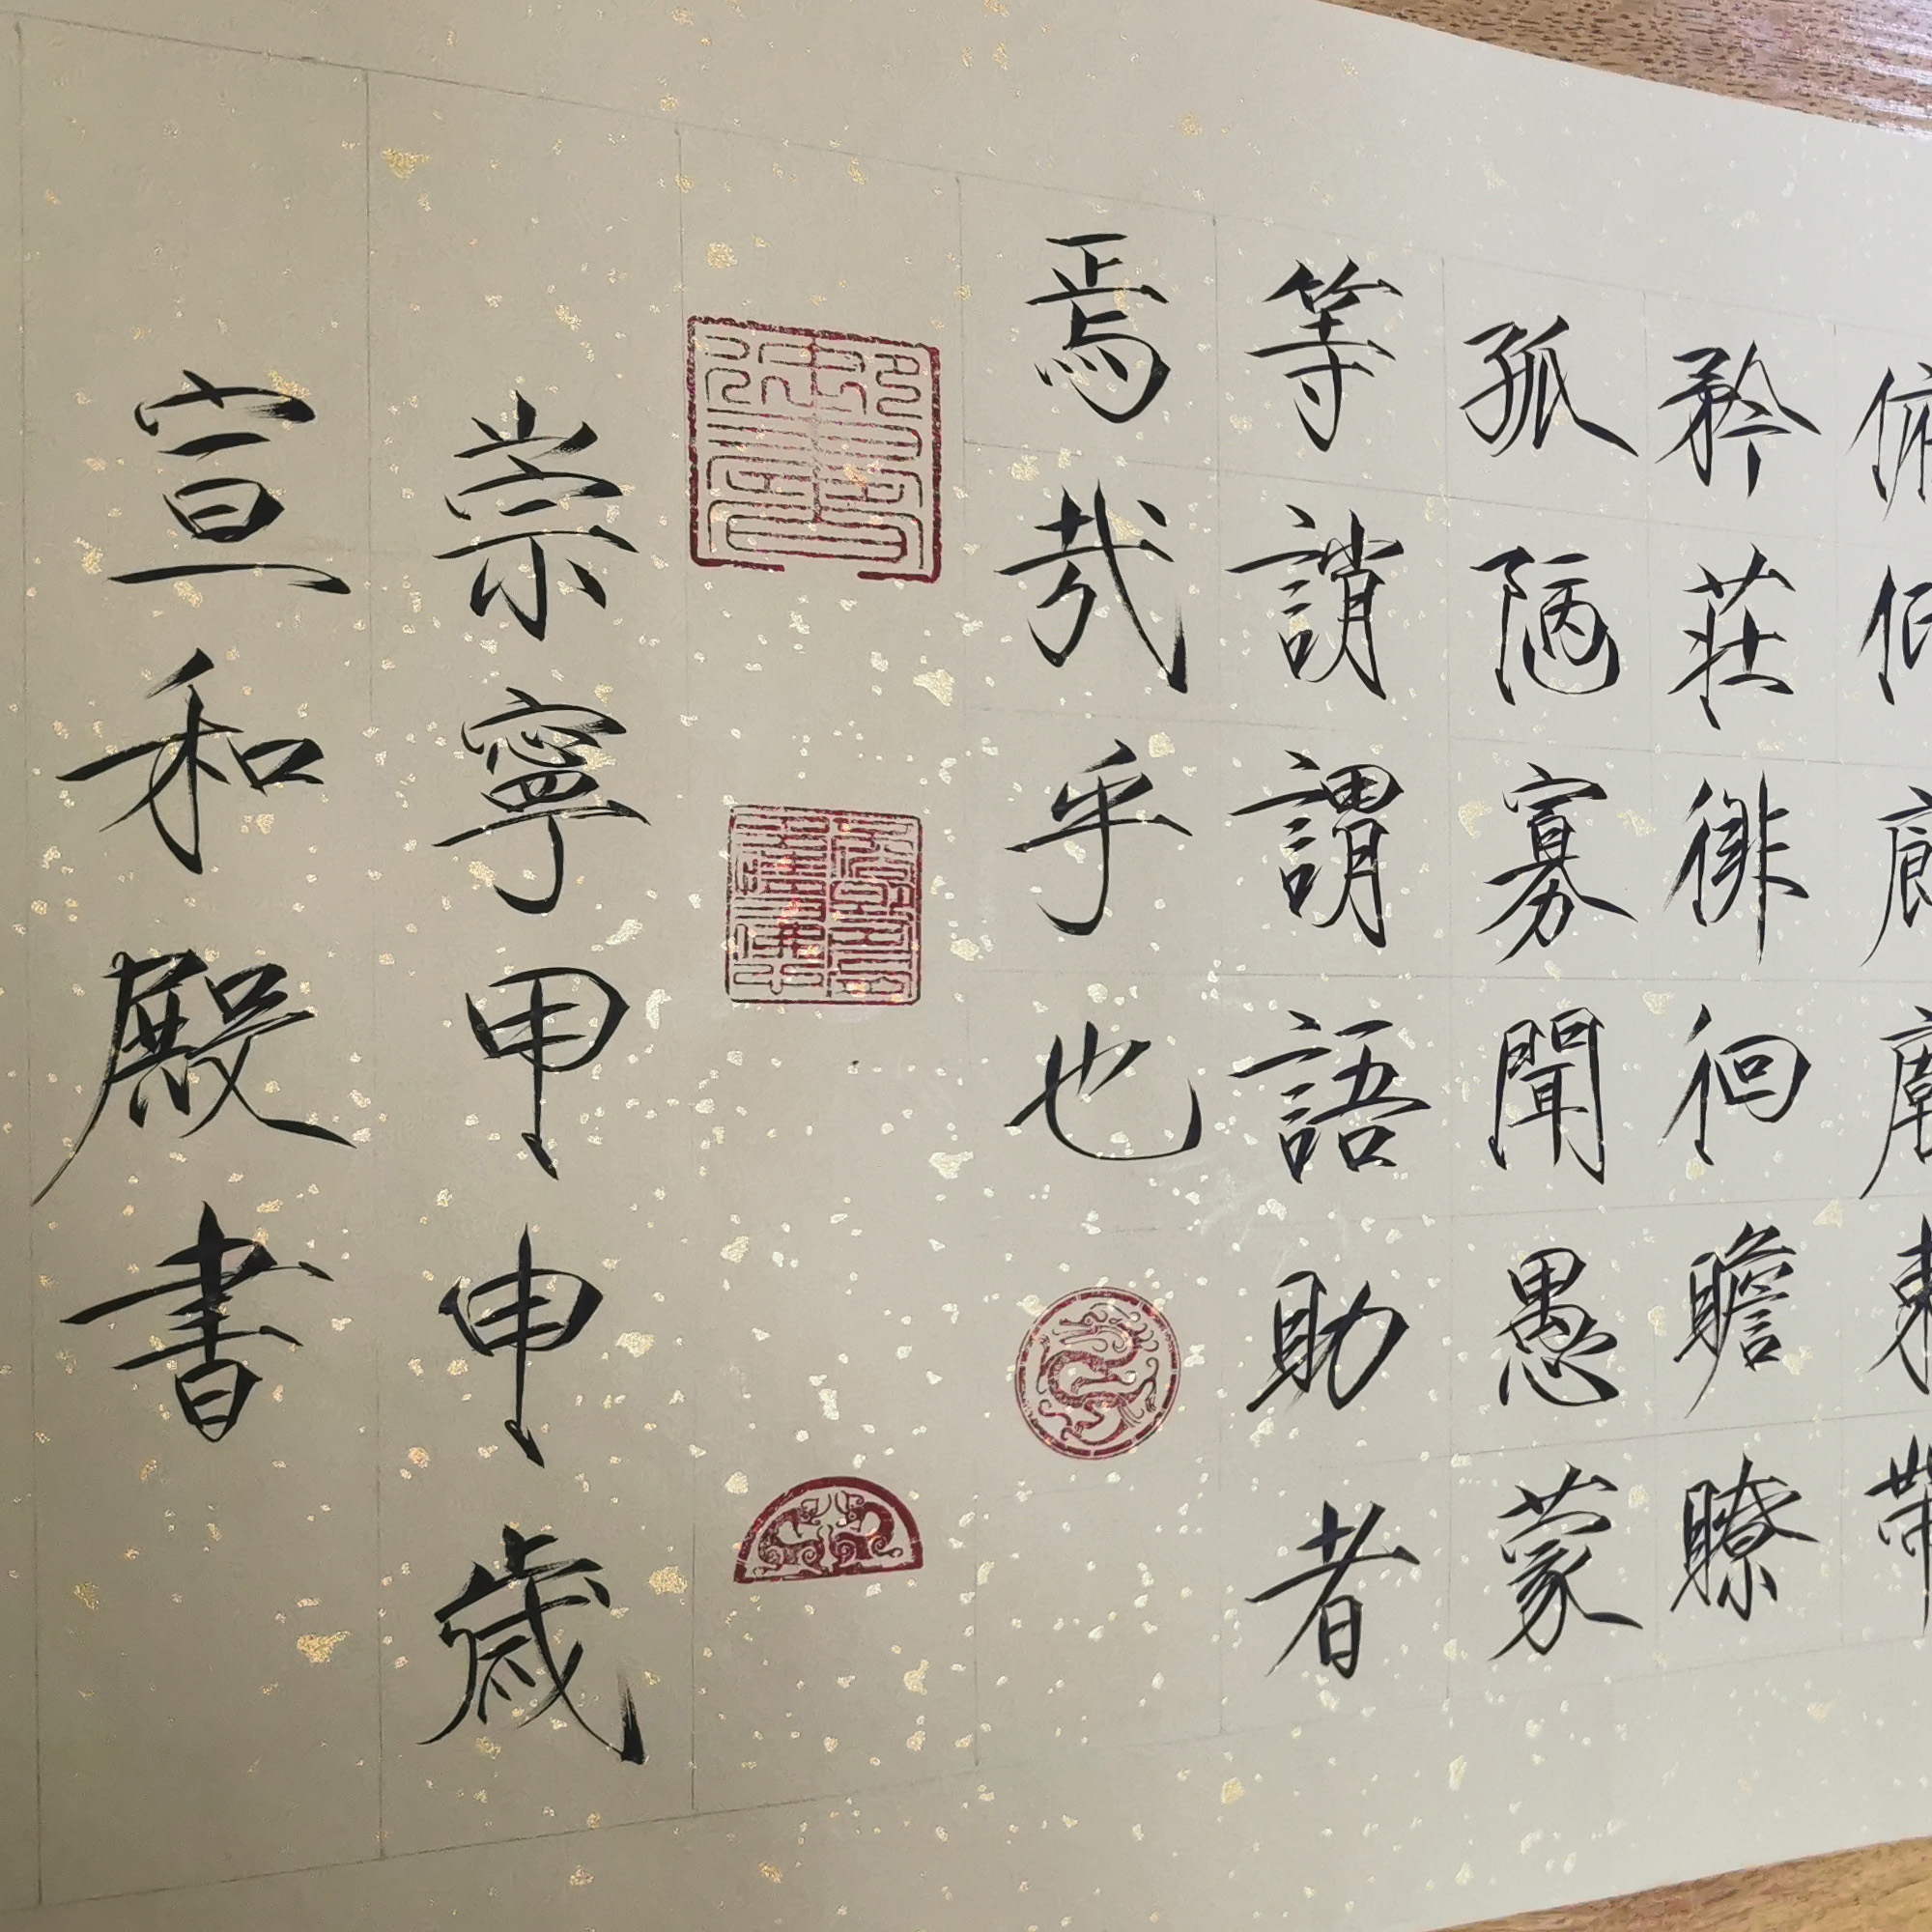 俯仰廊廟束帶
矜莊徘徊瞻瞭
孤陋寡聞愚蒙
等誚謂語助者
焉哉乎也
崇寧甲申歲
宣和殿書